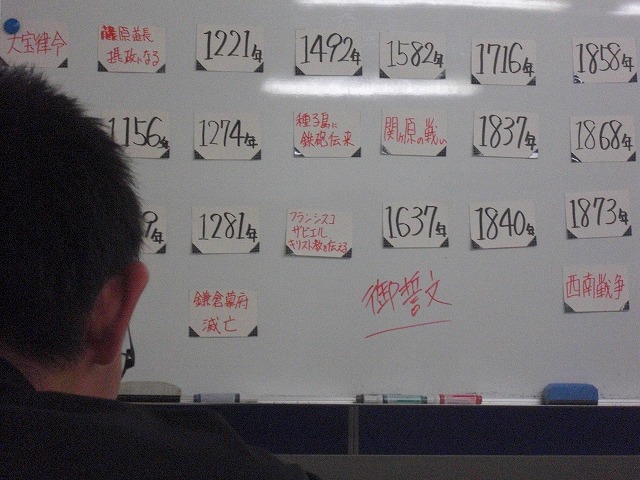 大宝律令
藤原良長
摂政になる
1221年
1492年
1582年
1716年
1858年
1156年
1274年
種子島に
鉄砲伝来
関ヶ原の戦い
1837年
1868年
9年
1281年
フランシスコ
ザビエル
キリスト教を伝える
1637年
1840年
1873年
鎌倉幕府
滅亡
御誓文
西南戦争